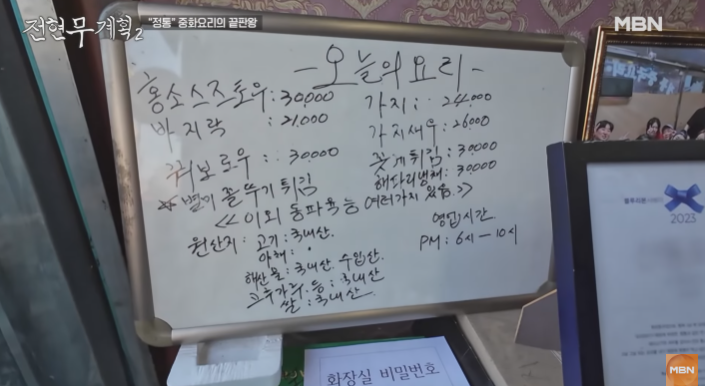 전현무계획2
"정통" 중화요리의 끝판왕
MBN
-오늘의 요리-
홍소스즈토우: 30,000
바지락 : 21,000
꿔보로우 : 30000
☆ 별이 꼴뚜기 튀김
<< 이외 동파육 등 여러가지 있음 >>
가지 : 24.000
가지새우 : 26000
꽃게 튀김 : 30,000
해파리냉채 : 30,000
원산지 : 고기 : 국내산.
야채 : 〃
해산물 : 국내산. 수입산.
고추가루. 등 : 국내산
쌀 : 국내산
영업시간
PM : 6시 — 10시
화장실 비밀번호
블루리본
2023
MBN